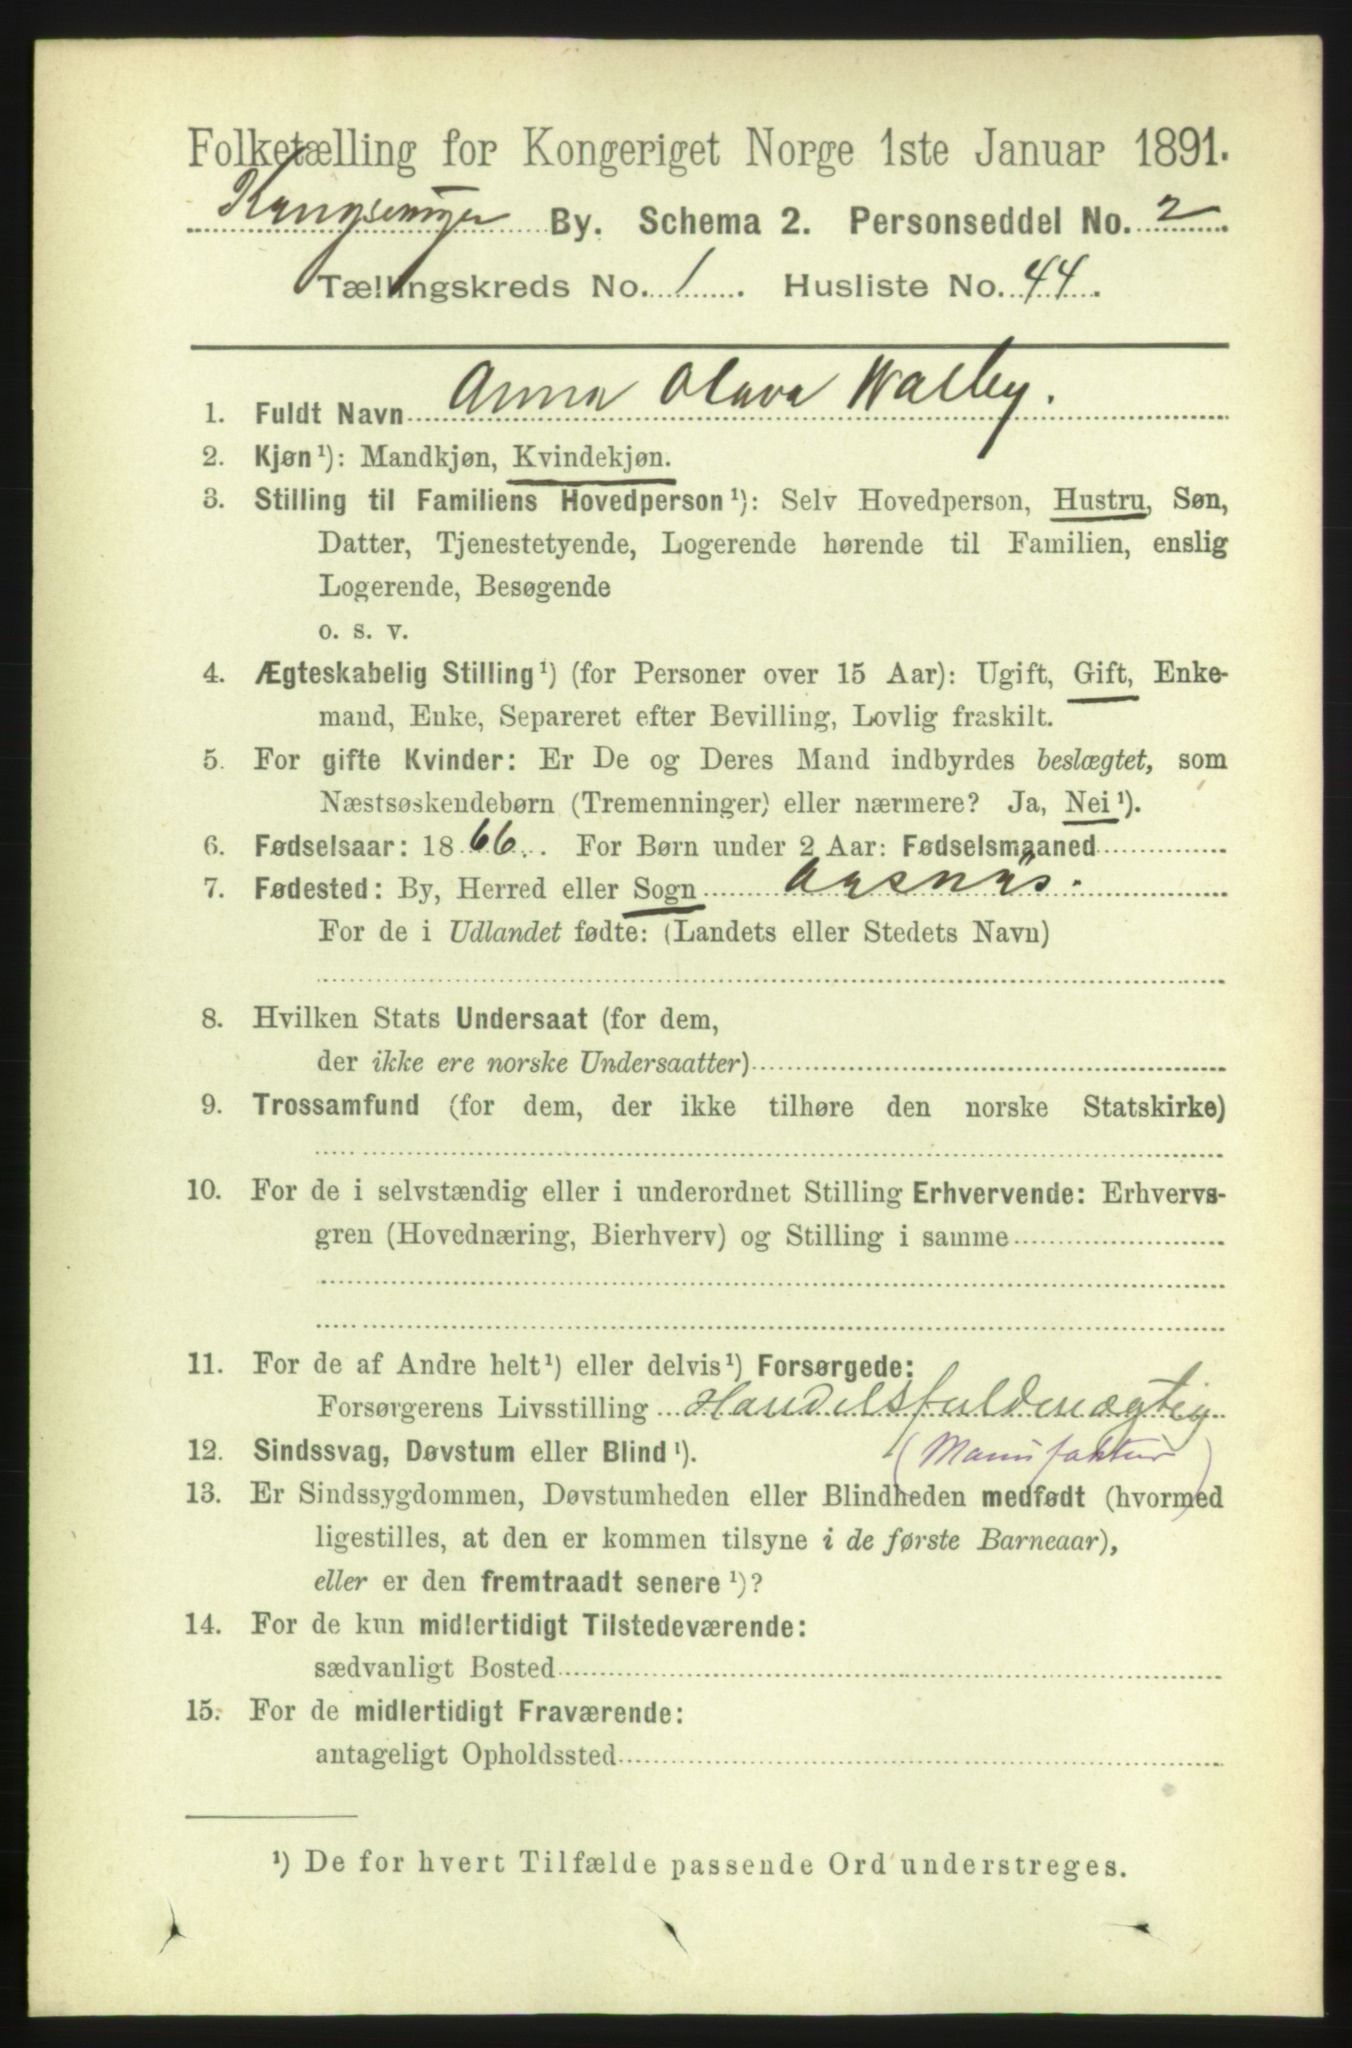 Folketælling for Kongeriget Norge 1ste Januar 1891.
Kongsvinger By. Schema 2. Personseddel No. 2
Tællingskreds No. 1. Husliste No. 44.
1. Fuldt Navn Anna Olava Walby.
2. Kjøn¹): Mandkjøn, Kvindekjøn.
3. Stilling til Familiens Hovedperson¹): Selv Hovedperson, Hustru, Søn,
Datter, Tjenestetyende, Logerende hørende til Familien, enslig
Logerende, Besøgende
o. s. v.
4. Ægteskabelig Stilling¹) (for Personer over 15 Aar): Ugift, Gift, Enke-
mand, Enke, Separeret efter Bevilling, Lovlig fraskilt.
5. For gifte Kvinder: Er De og Deres Mand indbyrdes beslægtet, som
Næstsøskendebørn (Tremenninger) eller nærmere? Ja, Nei¹).
6. Fødselsaar: 1866. For Børn under 2 Aar: Fødselsmaaned
7. Fødested: By, Herred eller Sogn Aasnæs.
For de i Udlandet fødte: (Landets eller Stedets Navn)
8. Hvilken Stats Undersaat (for dem,
der ikke ere norske Undersaatter)
9. Trossamfund (for dem, der ikke tilhøre den norske Statskirke)
10. For de i selvstændig eller i underordnet Stilling Erhvervende: Erhvervs-
gren (Hovednæring, Bierhverv) og Stilling i samme
11. For de af Andre helt¹) eller delvis¹) Forsørgede:
Forsørgerens Livsstilling Handelsfuldmægtig
12. Sindssvag, Døvstum eller Blind¹). (Manufaktur)
13. Er Sindssygdommen, Døvstumheden eller Blindheden medfødt (hvormed
ligestilles, at den er kommen tilsyne i de første Barneaar),
eller er den fremtraadt senere¹)?
14. For de kun midlertidigt Tilstedeværende:
sædvanligt Bosted
15. For de midlertidigt Fraværende:
antageligt Opholdssted
¹) De for hvert Tilfælde passende Ord understreges.